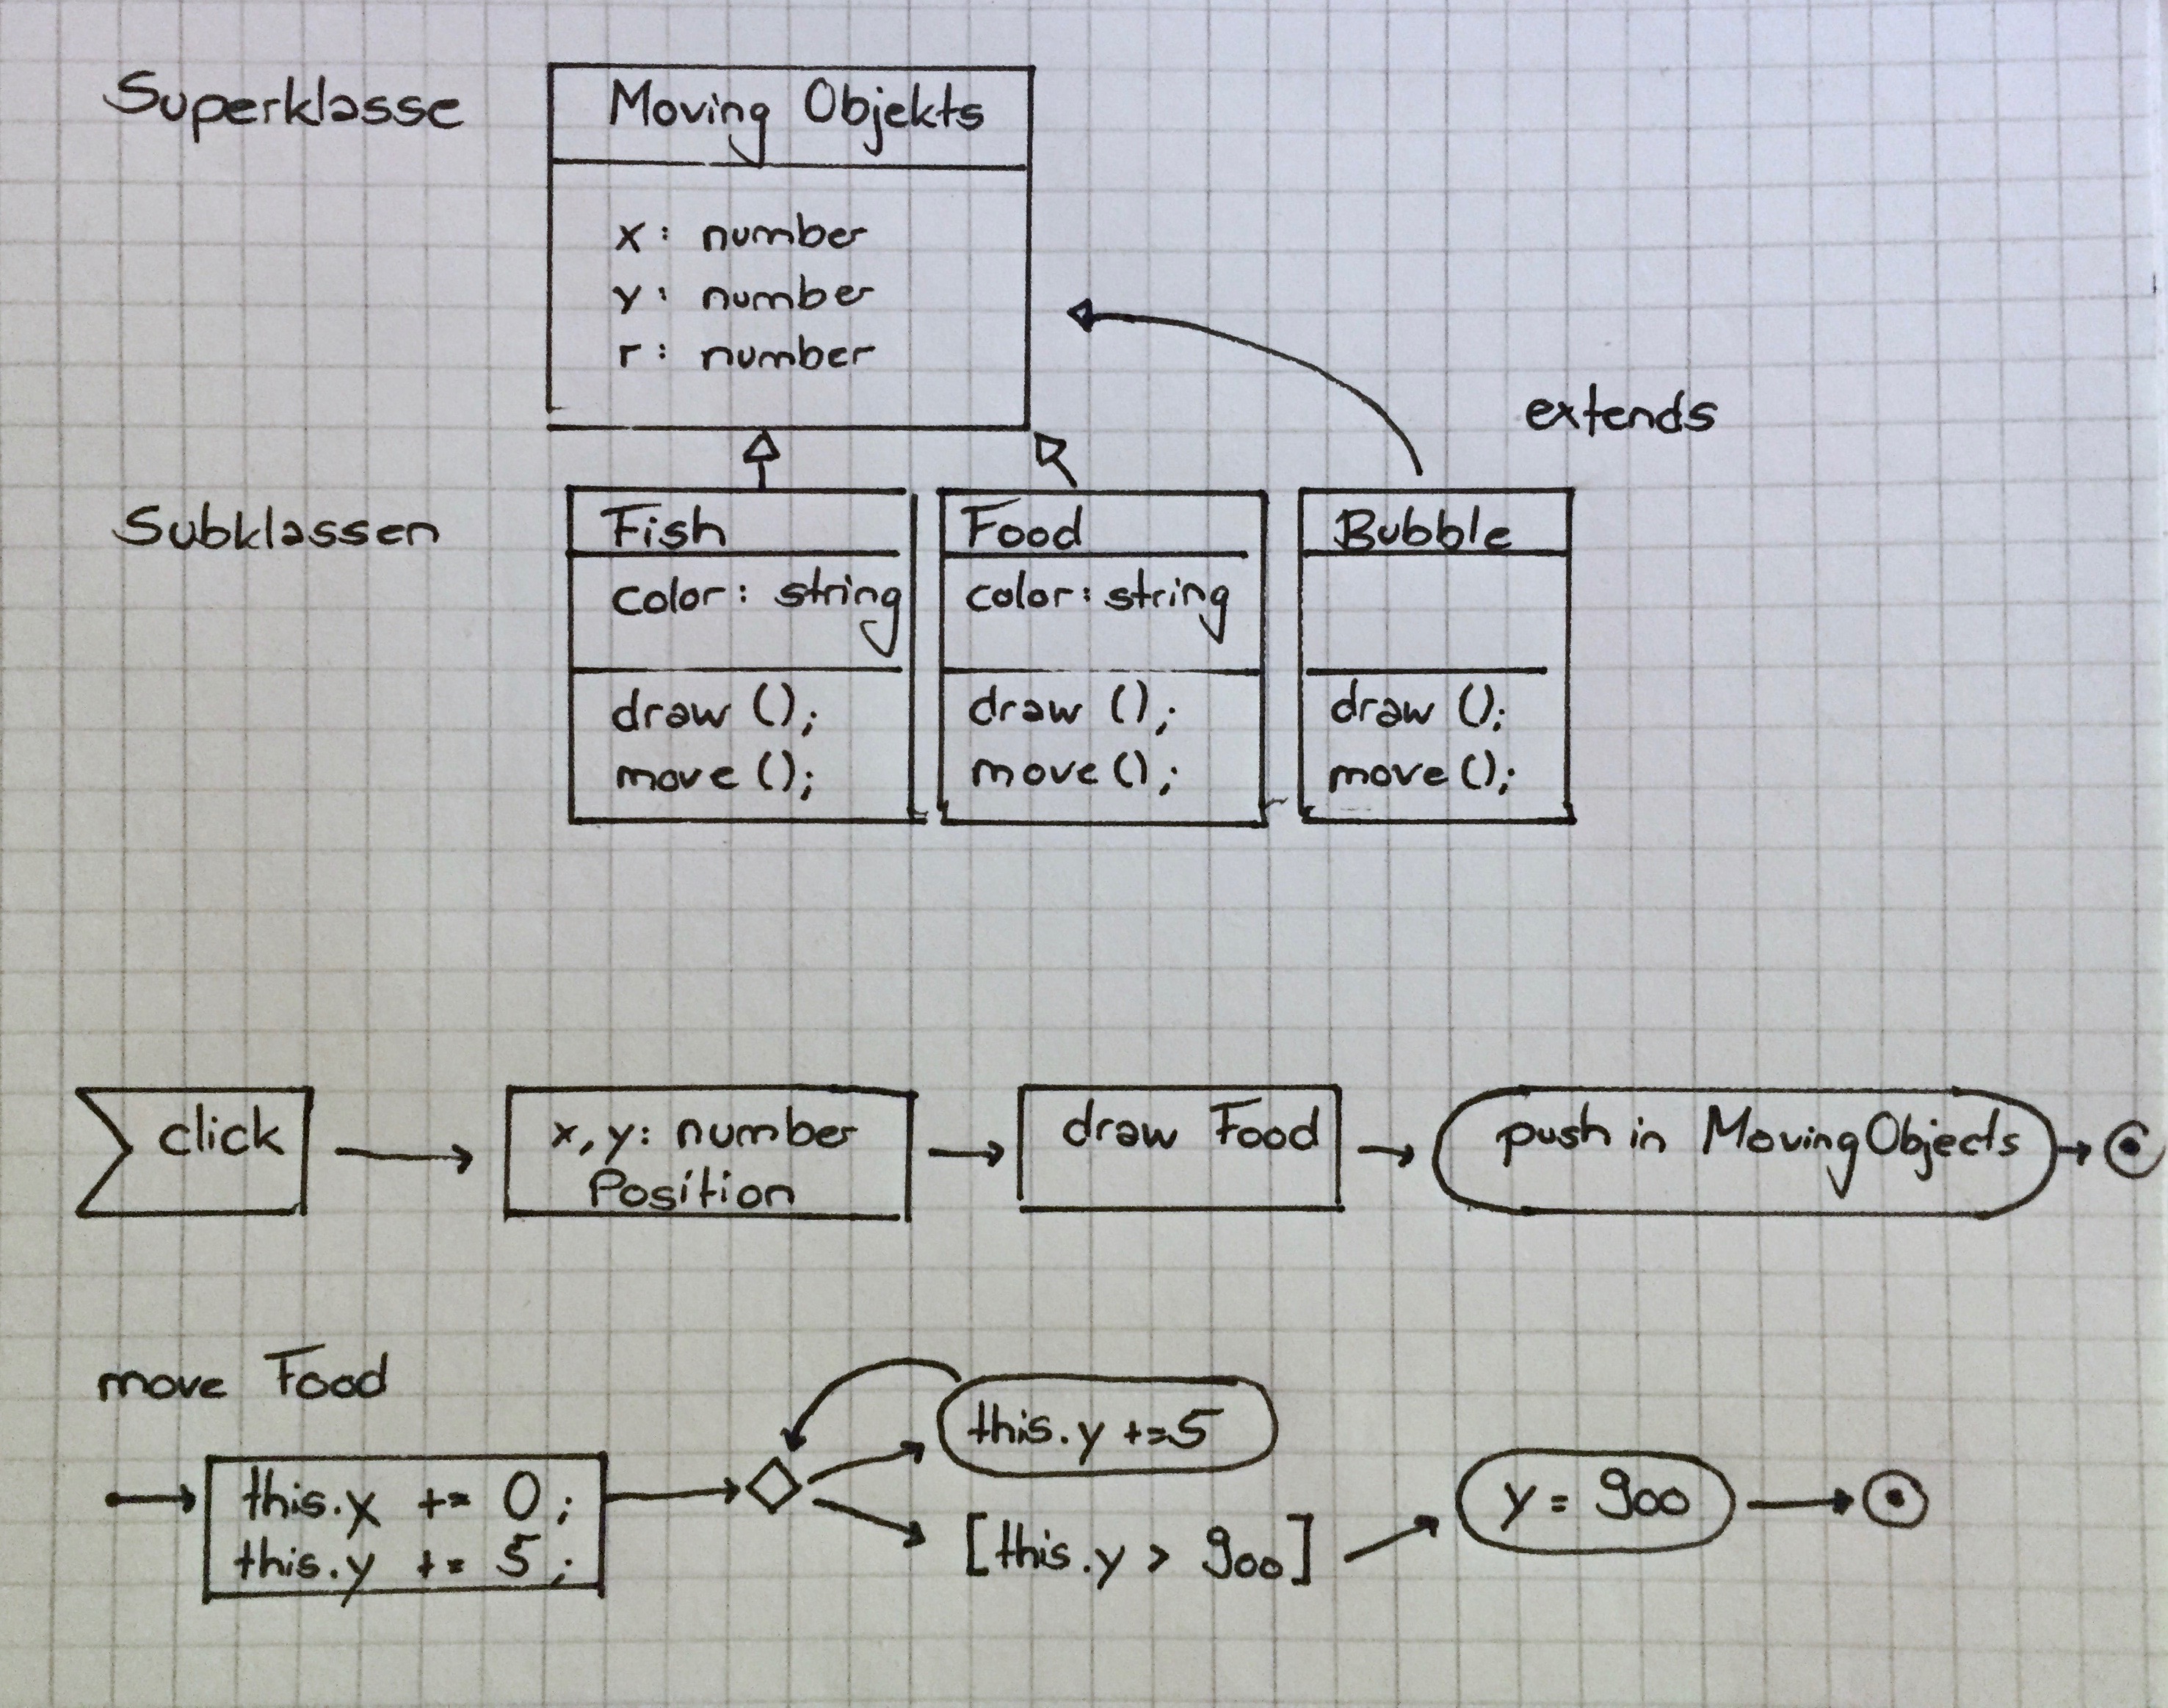 Superklasse
Moving Objekts
x: number
y: number
r: number
extends
Subklassen
Fish
color: string
draw ();
move ();
Food
color: string
draw ();
move ();
Bubble
draw ();
move ();
click
x, y: number
Position
draw Food
push in MovingObjects
move Food
this.x += 0;
this.y += 5;
this.y +=5
[this.y > 900]
y = 900